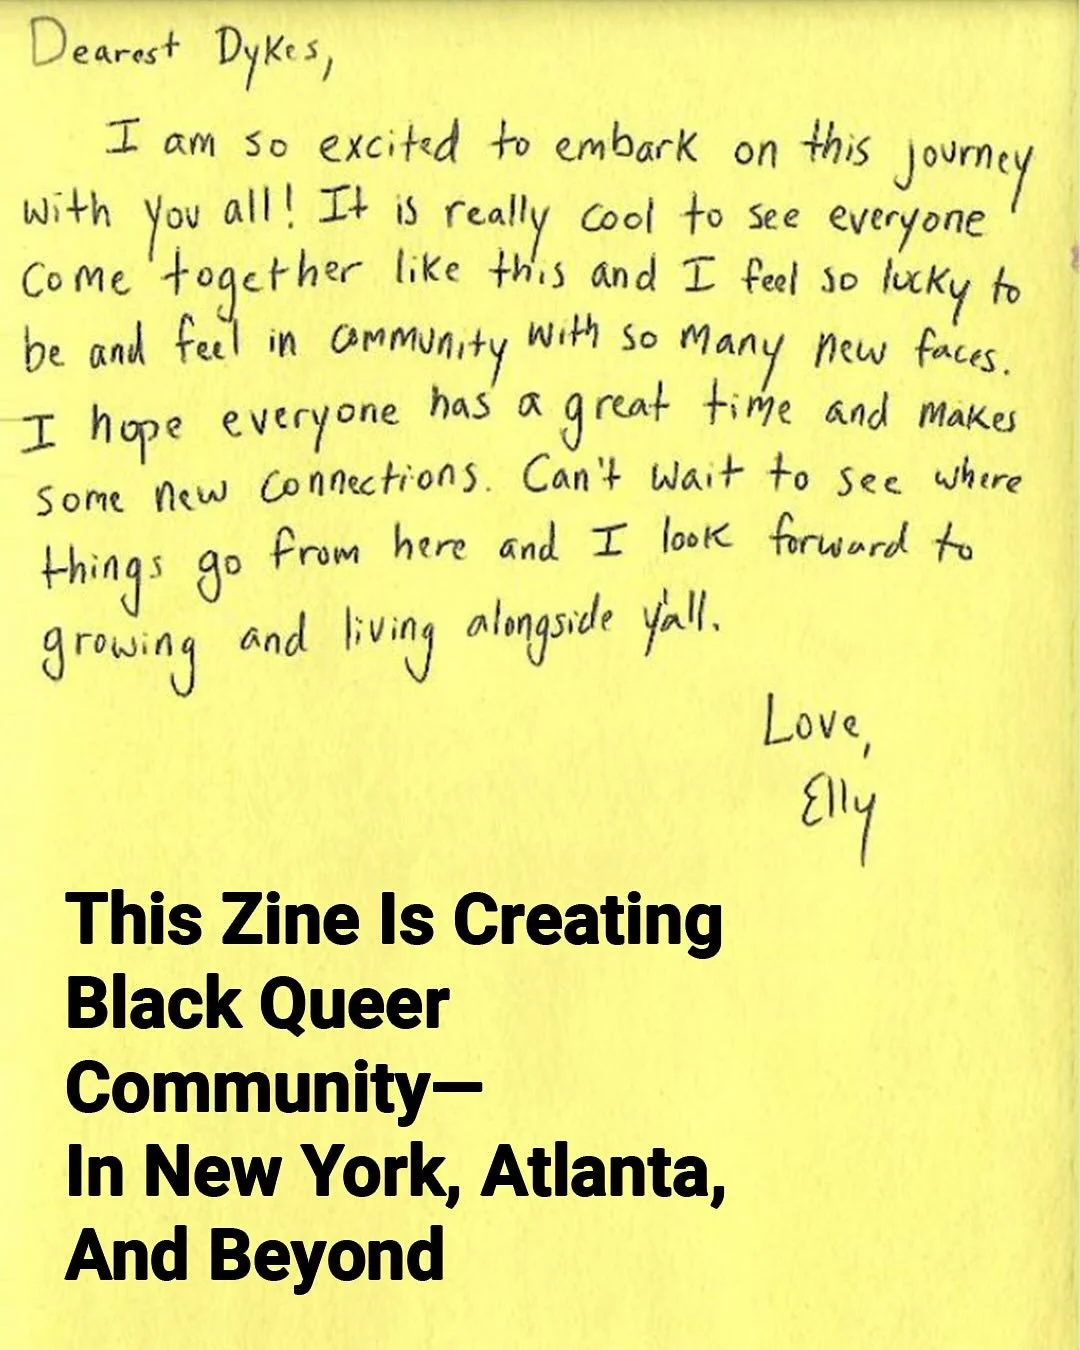 Dearest Dykes,
I am so excited to embark on this journey
with you all! It is really cool to see everyone
come together like this and I feel so lucky to
be and feel in community with so many new faces.
I hope everyone has a great time and makes
some new connections. Can't wait to see where
things go from here and I look forward to
growing and living alongside y'all.
Love,
Elly
This Zine Is Creating
Black Queer
Community—
In New York, Atlanta,
And Beyond